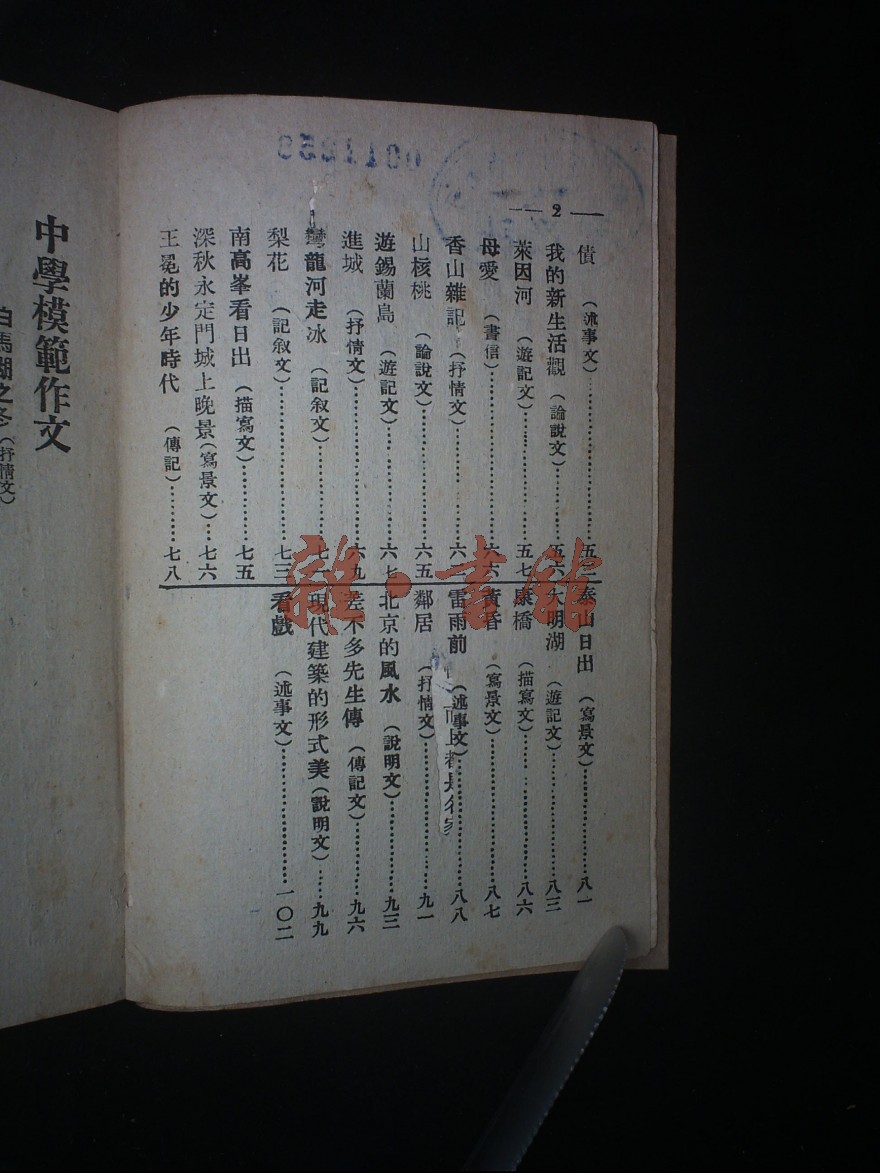 — 2 —
債 (述事文)…………五二
我的新生活觀 (論說文)……五六
萊因河 (遊記文)…………五七
母愛 (書信)…………六
香山雜記 (抒情文)…………六
山核桃 (論說文)…………六五
遊錫蘭島 (遊記文)…………六七
進城 (抒情文)…………六九
龍河走冰 (記叙文)…………七一
梨花 (記叙文)…………七三
南高峯看日出 (描寫文)……七五
深秋永定門城上晚景(寫景文)…七六
王冕的少年時代 (傳記)……七八
泰山日出 (寫景文)…………八一
大明湖 (遊記文)…………八三
康橋 (描寫文)…………八六
黃昏 (寫景文)…………八七
雷雨前 (述事文)…………八八
鄰居 (抒情文)…………九一
北京的風水 (說明文)…………九三
差不多先生傳 (傳記文)……九六
現代建築的形式美(說明文)…九九
看戲 (述事文)…………一〇二
中學模範作文
白馬湖之冬(抒情文)
雜·書館
0011259